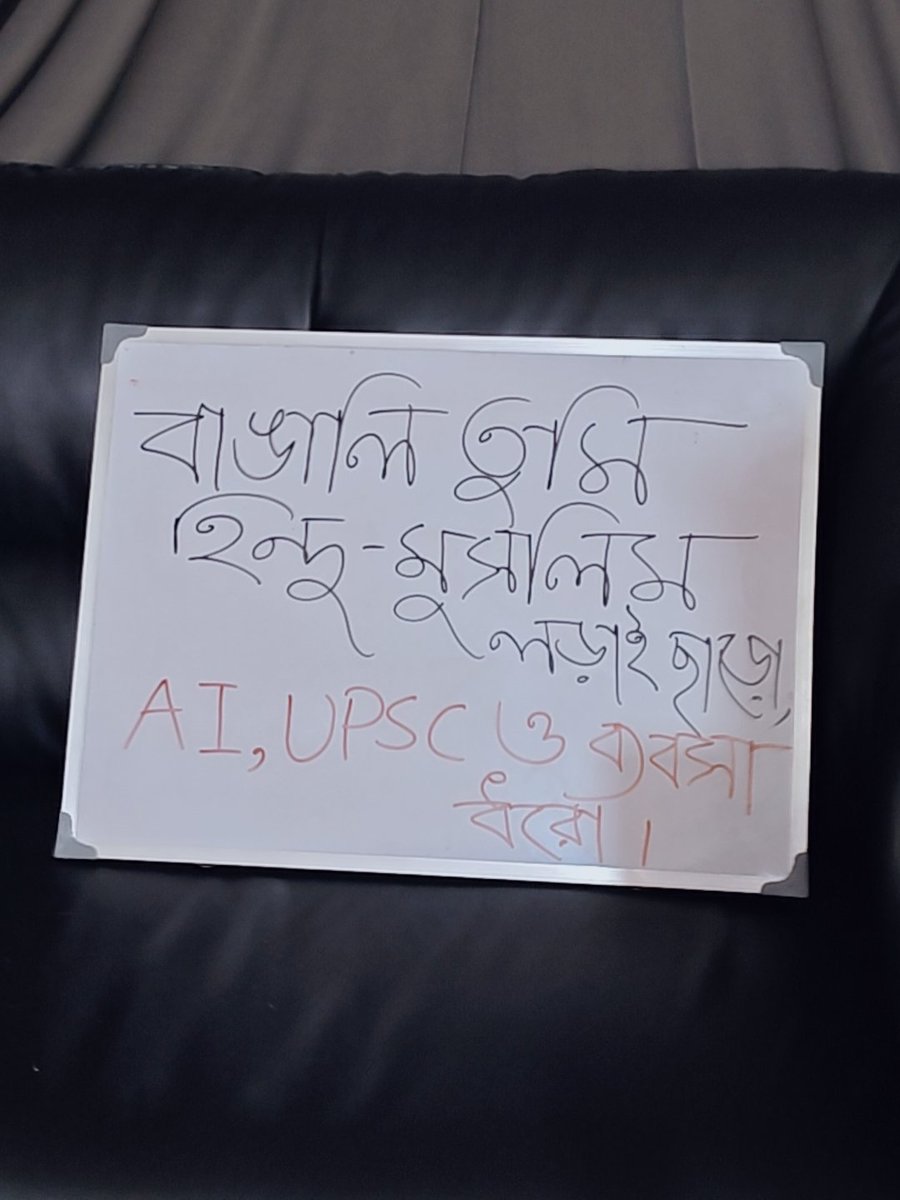 বাঙালি তুমি
হিন্দু-মুসলিম
লড়াই ছাড়ো,
AI, UPSC ও ব্যবসা
ধরো।